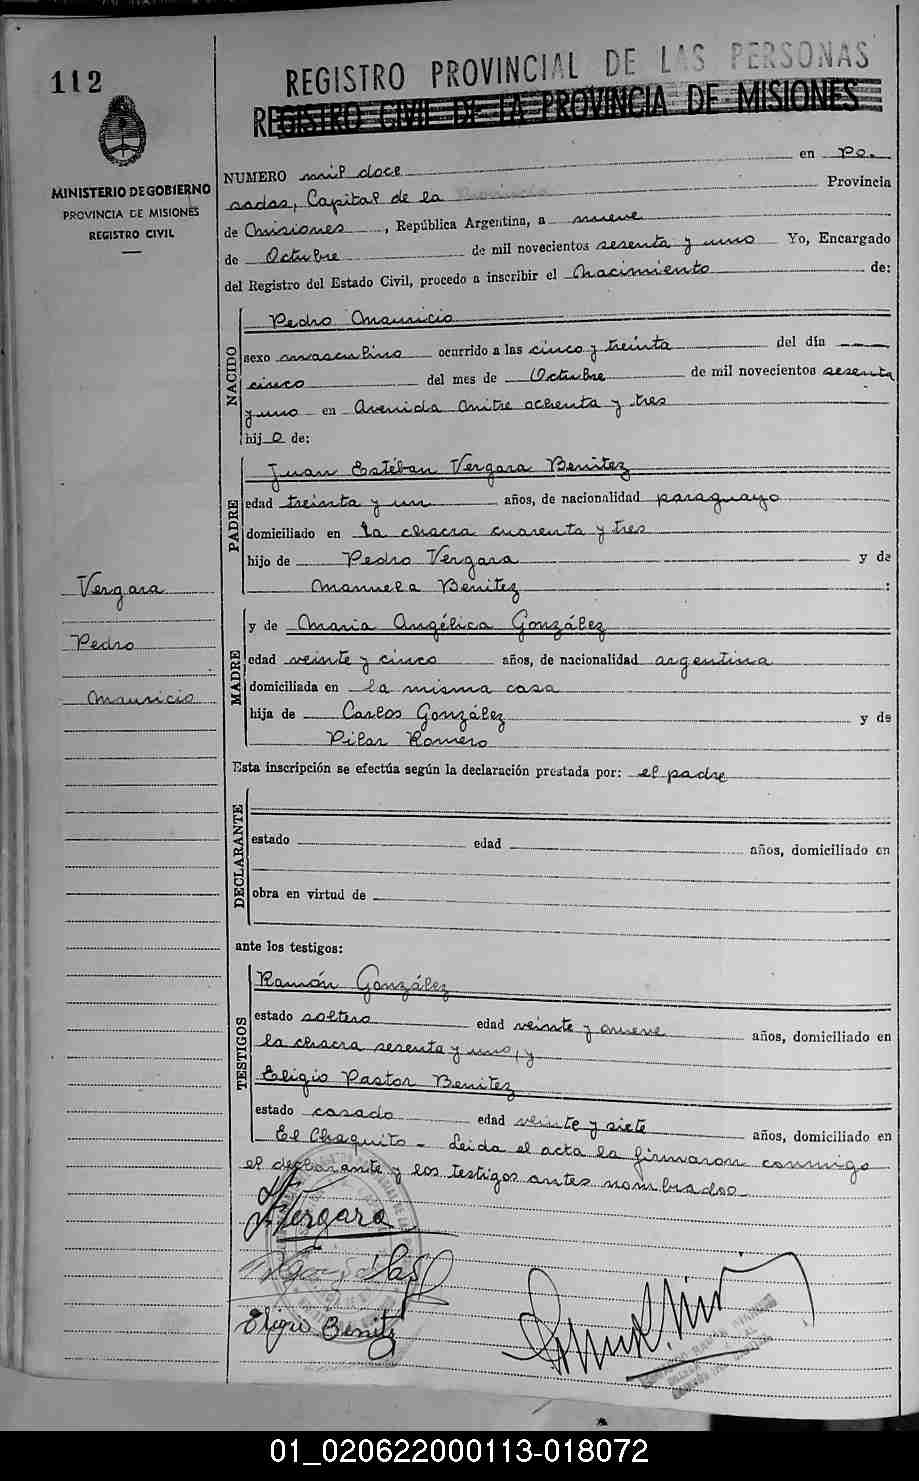 112
REGISTRO PROVINCIAL DE LAS PERSONAS
REGISTRO CIVIL DE LA PROVINCIA DE MISIONES
MINISTERIO DE GOBIERNO
PROVINCIA DE MISIONES
REGISTRO CIVIL
NUMERO mil doce en Po.
sadas, Capital de la Provincia Provincia
de Misiones, República Argentina, a nueve
de Octubre de mil novecientos sesenta y uno Yo, Encargado
del Registro del Estado Civil, procedo a inscribir el Nacimiento de:
NACIDO
Pedro Mauricio
sexo masculino ocurrido a las cinco y treinta del día
cinco del mes de Octubre de mil novecientos sesenta
y uno en Avenida Mitre ochenta y tres
hijo de:
PADRE
Juan Estéban Vergara Benitez
edad treinta y un años, de nacionalidad paraguayo
domiciliado en la chacra cuarenta y tres
hijo de Pedro Vergara y de
Manuela Benitez :
Vergara
Pedro
Mauricio
MADRE
y de Maria Angélica González
edad veinte y cinco años, de nacionalidad argentina
domiciliada en la misma casa
hija de Carlos González y de
Pilar Romero
Esta inscripción se efectúa según la declaración prestada por: el padre
DECLARANTE
estado edad años, domiciliado en
obra en virtud de
ante los testigos:
TESTIGOS
Ramón González
estado soltero edad veinte y nueve años, domiciliado en
la chacra sesenta y uno, y
Eligio Pastor Benitez
estado casado edad veinte y siete años, domiciliado en
El Chaquito - Leida el acta la firmaron conmigo
el declarante y los testigos antes nombrados
Vergara
Eligio Benitz
01_020622000113-018072